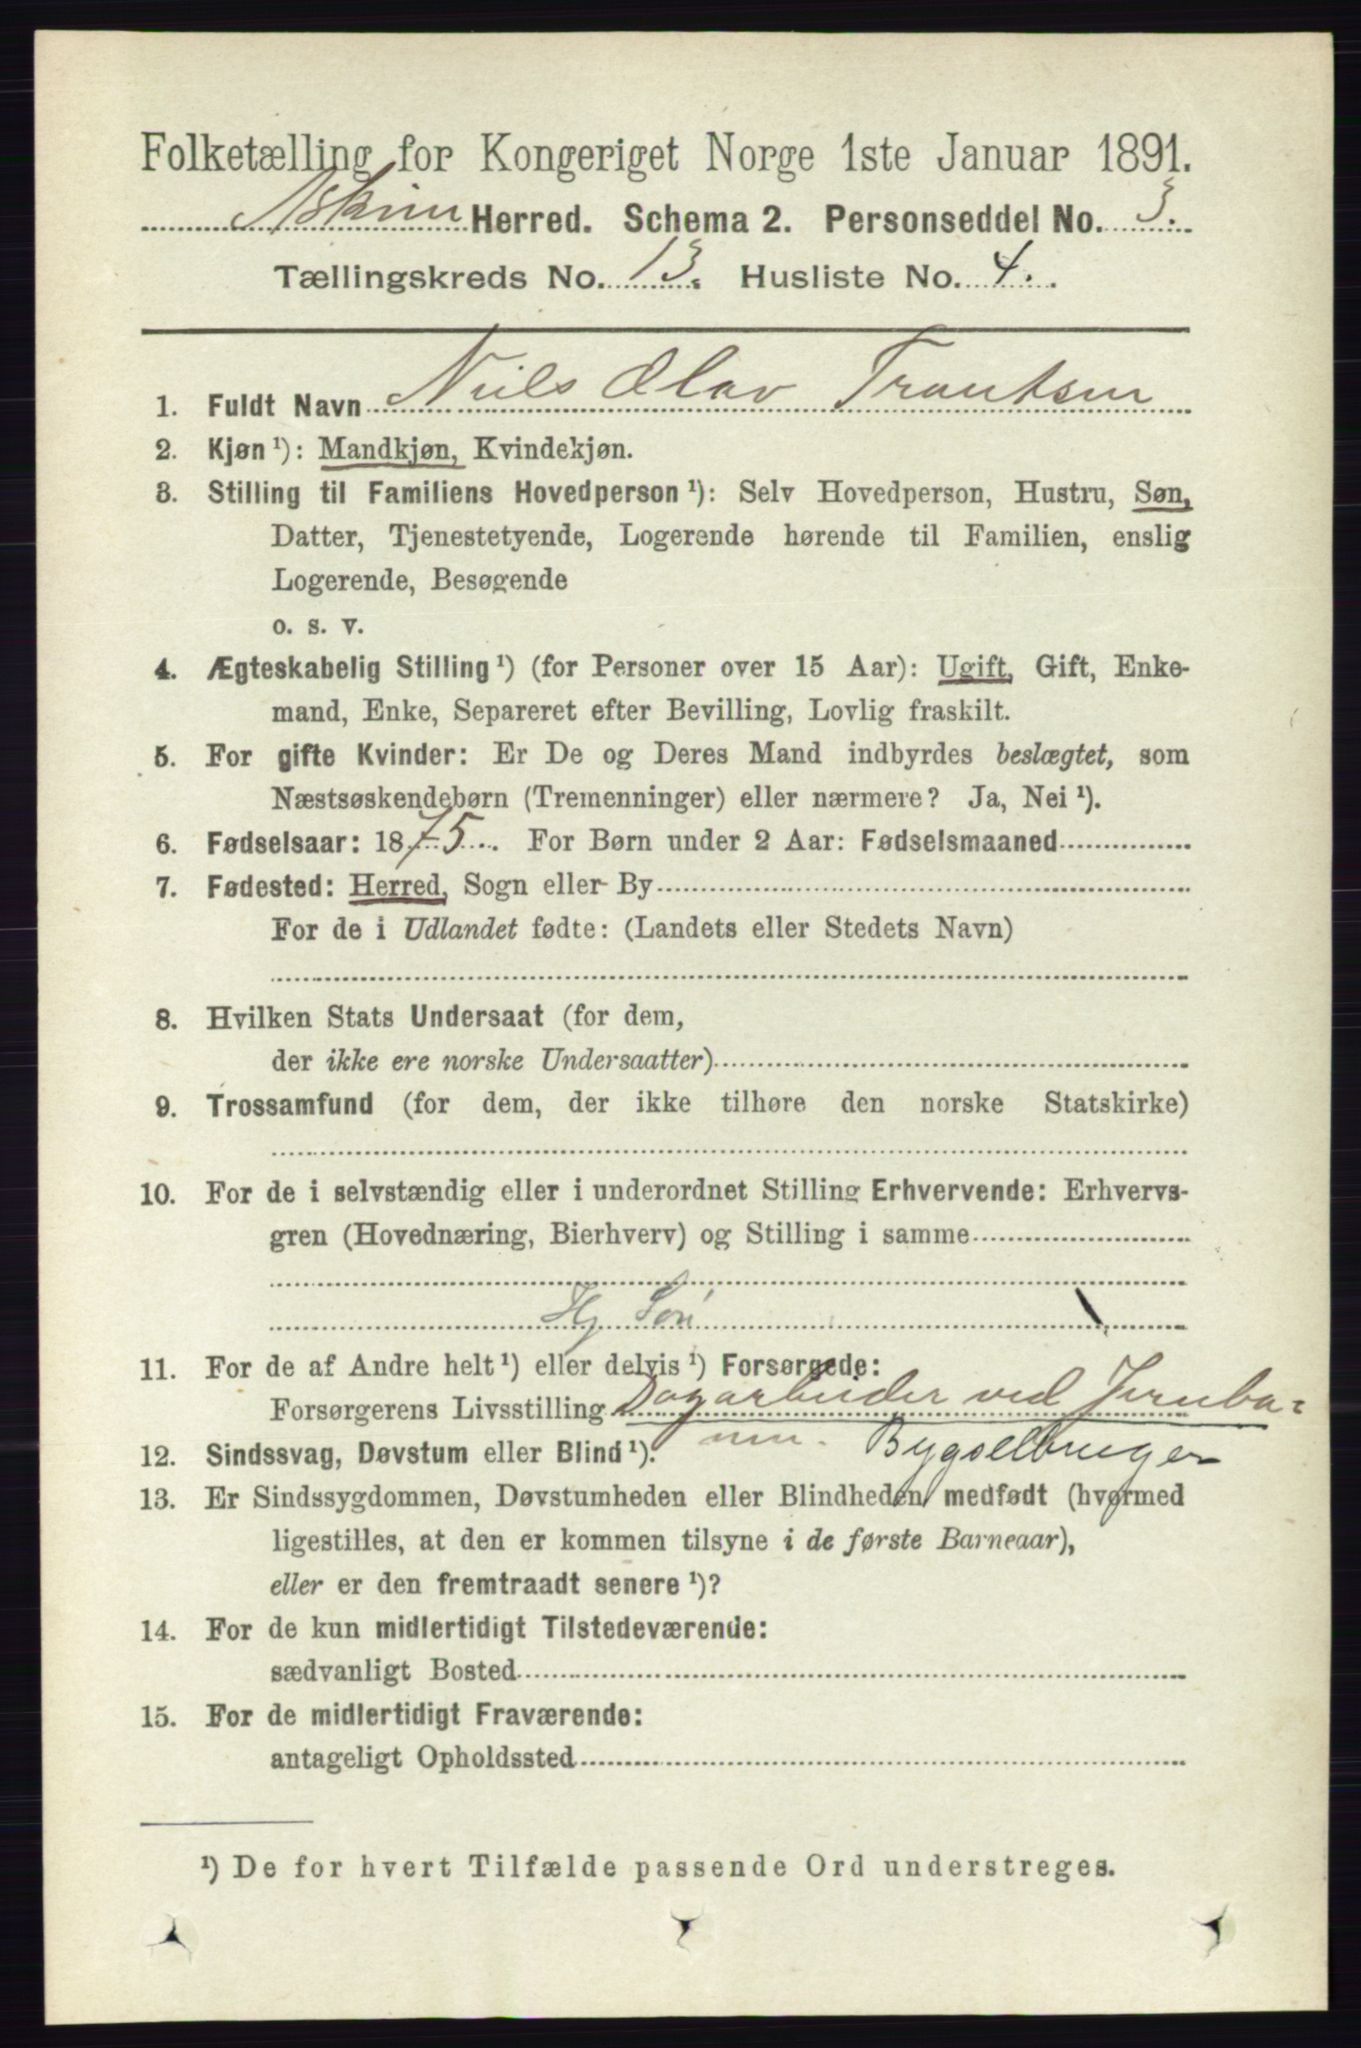 Folketælling for Kongeriget Norge 1ste Januar 1891.
Askim Herred. Schema 2. Personseddel No. 3.
Tællingskreds No. 13. Husliste No. 4.
1. Fuldt Navn Niels Olav Trontsen
2. Kjøn ¹): Mandkjøn, Kvindekjøn.
3. Stilling til Familiens Hovedperson ¹): Selv Hovedperson, Hustru, Søn,
Datter, Tjenestetyende, Logerende hørende til Familien, enslig
Logerende, Besøgende
o. s. v.
4. Ægteskabelig Stilling ¹) (for Personer over 15 Aar): Ugift, Gift, Enke-
mand, Enke, Separeret efter Bevilling, Lovlig fraskilt.
5. For gifte Kvinder: Er De og Deres Mand indbyrdes beslægtet, som
Næstsøskendebørn (Tremenninger) eller nærmere? Ja, Nei ¹).
6. Fødselsaar: 1875. For Børn under 2 Aar: Fødselsmaaned
7. Fødested: Herred, Sogn eller By
For de i Udlandet fødte: (Landets eller Stedets Navn)
8. Hvilken Stats Undersaat (for dem,
der ikke ere norske Undersaatter)
9. Trossamfund (for dem, der ikke tilhøre den norske Statskirke)
10. For de i selvstændig eller i underordnet Stilling Erhvervende: Erhvervs-
gren (Hovednæring, Bierhverv) og Stilling i samme
Hj Søn
11. For de af Andre helt ¹) eller delvis ¹) Forsørgede:
Forsørgerens Livsstilling Dagarbeider ved Jernba-
nen. Bygselbruger
12. Sindssvag, Døvstum eller Blind ¹).
13. Er Sindssygdommen, Døvstumheden eller Blindheden medfødt (hvormed
ligestilles, at den er kommen tilsyne i de første Barneaar),
eller er den fremtraadt senere ¹)?
14. For de kun midlertidigt Tilstedeværende:
sædvanligt Bosted
15. For de midlertidigt Fraværende:
antageligt Opholdssted
¹) De for hvert Tilfælde passende Ord understreges.